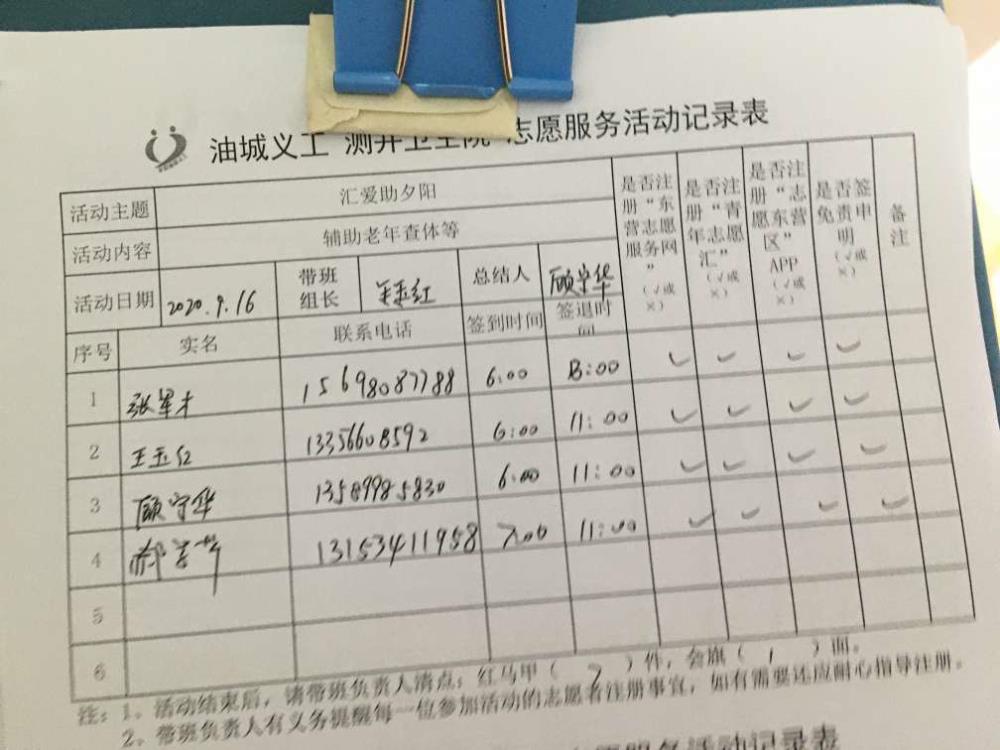 油城义工 测井卫生院 志愿服务活动记录表
活动主题 汇爱助夕阳 是否注册“东营志愿服务网”(√或×) 是否注册“青年志愿汇”(√或×) 是否注册“志愿东营区”APP(√或×) 是否签免责申明(√或×) 备注
活动内容 辅助老年查体等
活动日期 2020.9.16 带班组长 王玉红 总结人 顾宁华
序号 实名 联系电话 签到时间 签退时间
1 张军才 15698087788 6:00 8:00 ✓ ✓ ✓ ✓
2 王玉红 13356608592 6:00 11:00 ✓ ✓ ✓ ✓
3 顾宁华 13589985830 6:00 11:00 ✓ ✓ ✓ ✓
4 郝 13153411958 7:00 11:00 ✓ ✓ ✓ ✓
5
6
注：1、活动结束后，请带班负责人清点：红马甲（ ）件，会旗（1）面。
2、带班负责人有义务提醒每一位参加活动的志愿者注册事宜，如有需要还应耐心指导注册。
志愿服务活动记录表